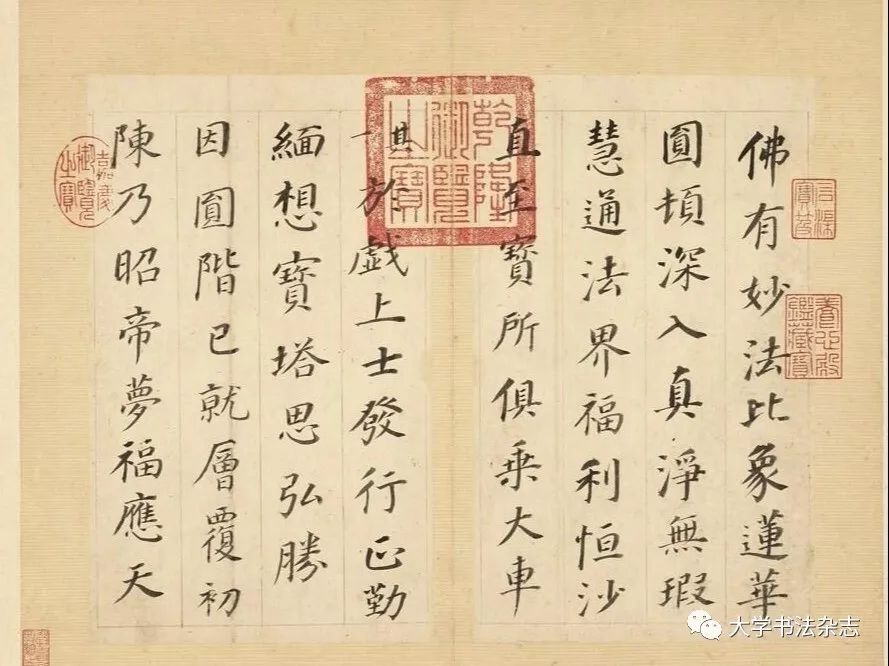 佛有妙法比象蓮華
圓頓深入真淨無瑕
慧通法界福利恒沙
直至寶所俱乘大車
其一於戲上士發行正勤
緬想寶塔思弘勝
因圓階已就層覆初
陳乃昭帝夢福應天
石渠寶笈
養心殿鑑藏寶
乾隆御覽之寶
嘉慶御覽之寶
大学书法杂志